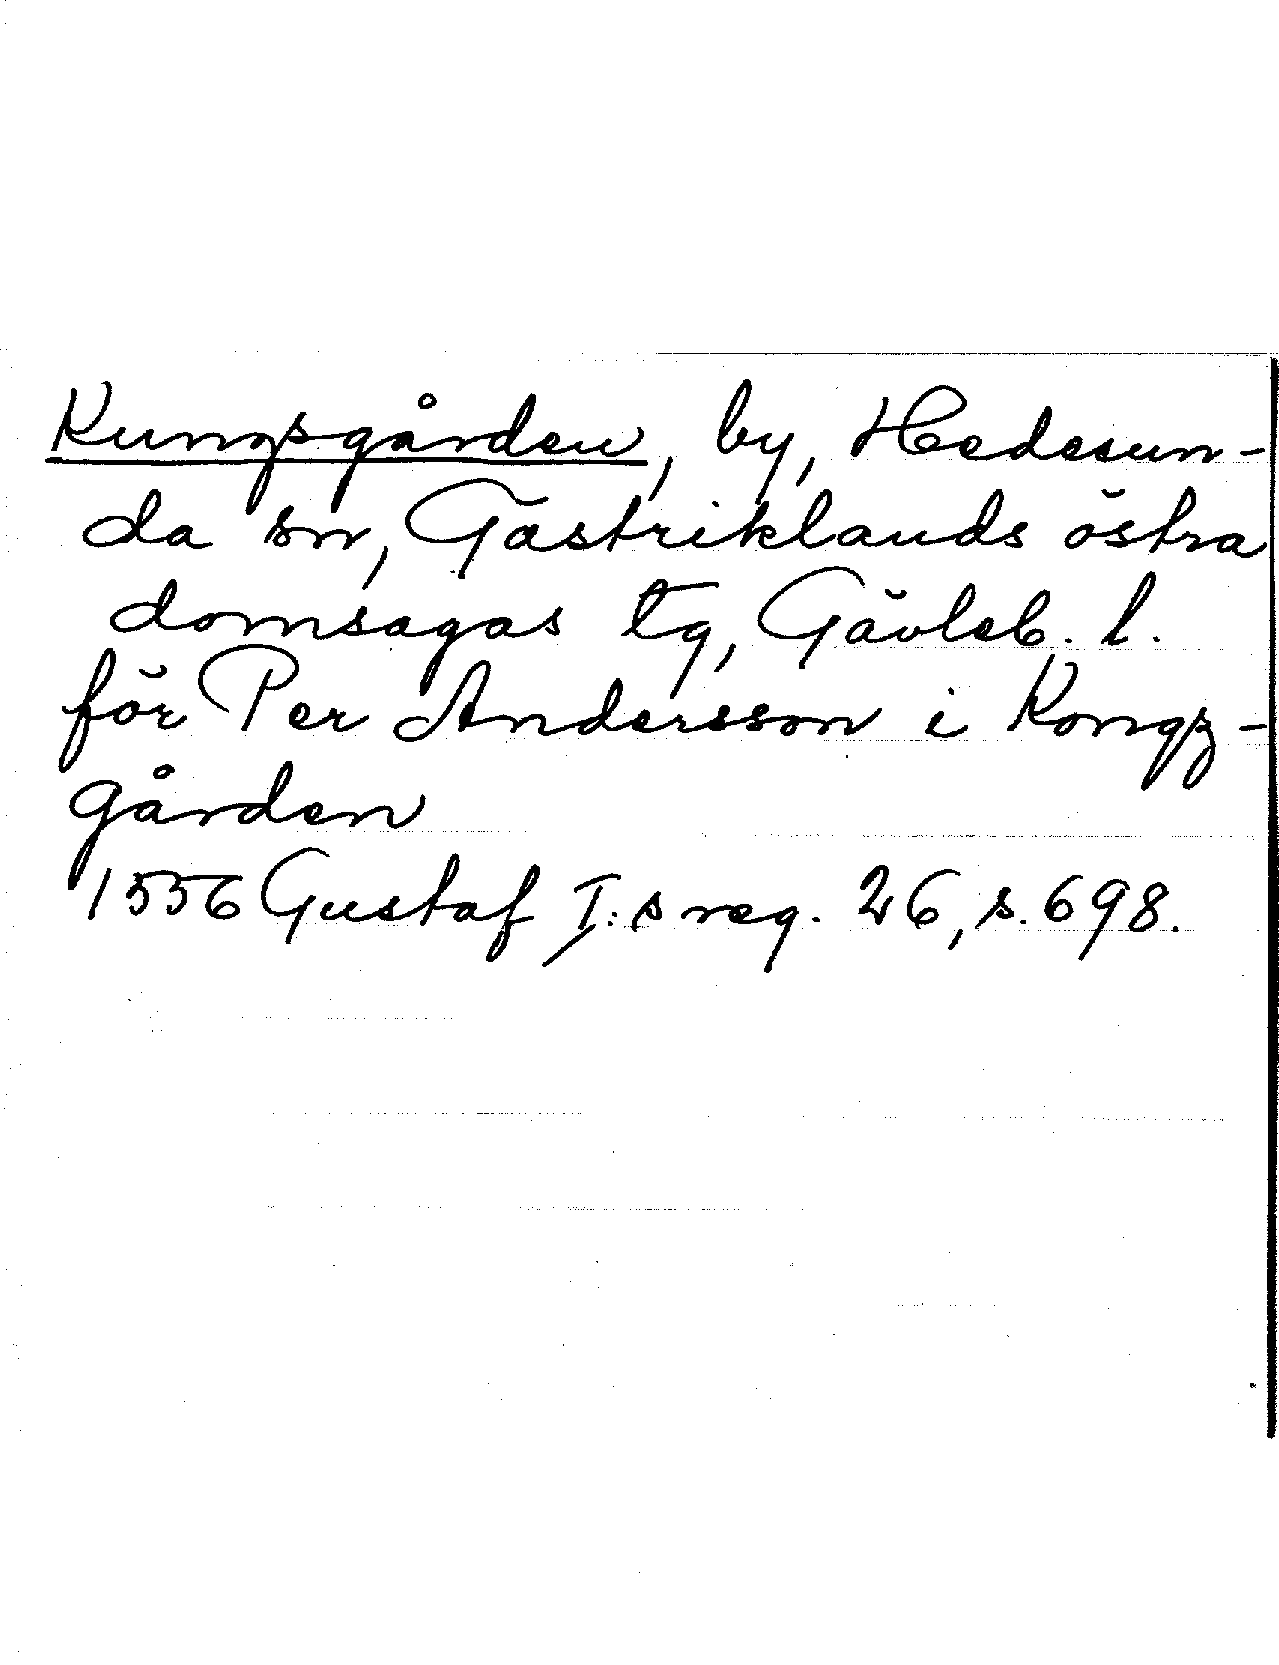 Kungsgården, by, Hedesun-
da sn, Gästriklands östra
domsagas tg, Gävleb. l.
för Per Andersson i Kongz-
gården
1556 Gustaf I:s reg. 26, s. 698.